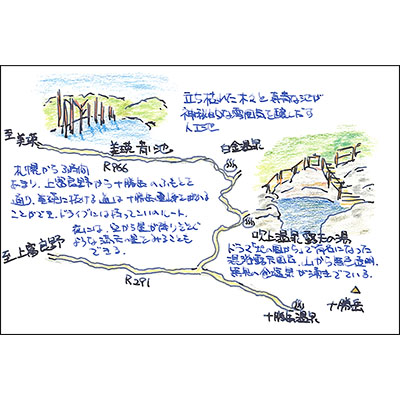 立ち枯れた木々と真青な池が
神秘的な雰囲気を醸しだす
人工池
至美瑛
美瑛青い池
白金温泉
R966
札幌から3時間
あまり、上富良野から十勝岳のふもとを
通り、美瑛に抜ける道は十勝岳連峰を眺める
ことができ、ドライブには持ってこいのルート。
夜には、空から星が降りそそぐ
ような満天の星をみることも
できる。
至上富良野
R291
吹上温泉 露天の湯
ドラマ「北の国から」で有名になった
混浴露天風呂。山から無色透明
の温泉が湧きでている。
十勝岳
十勝岳温泉